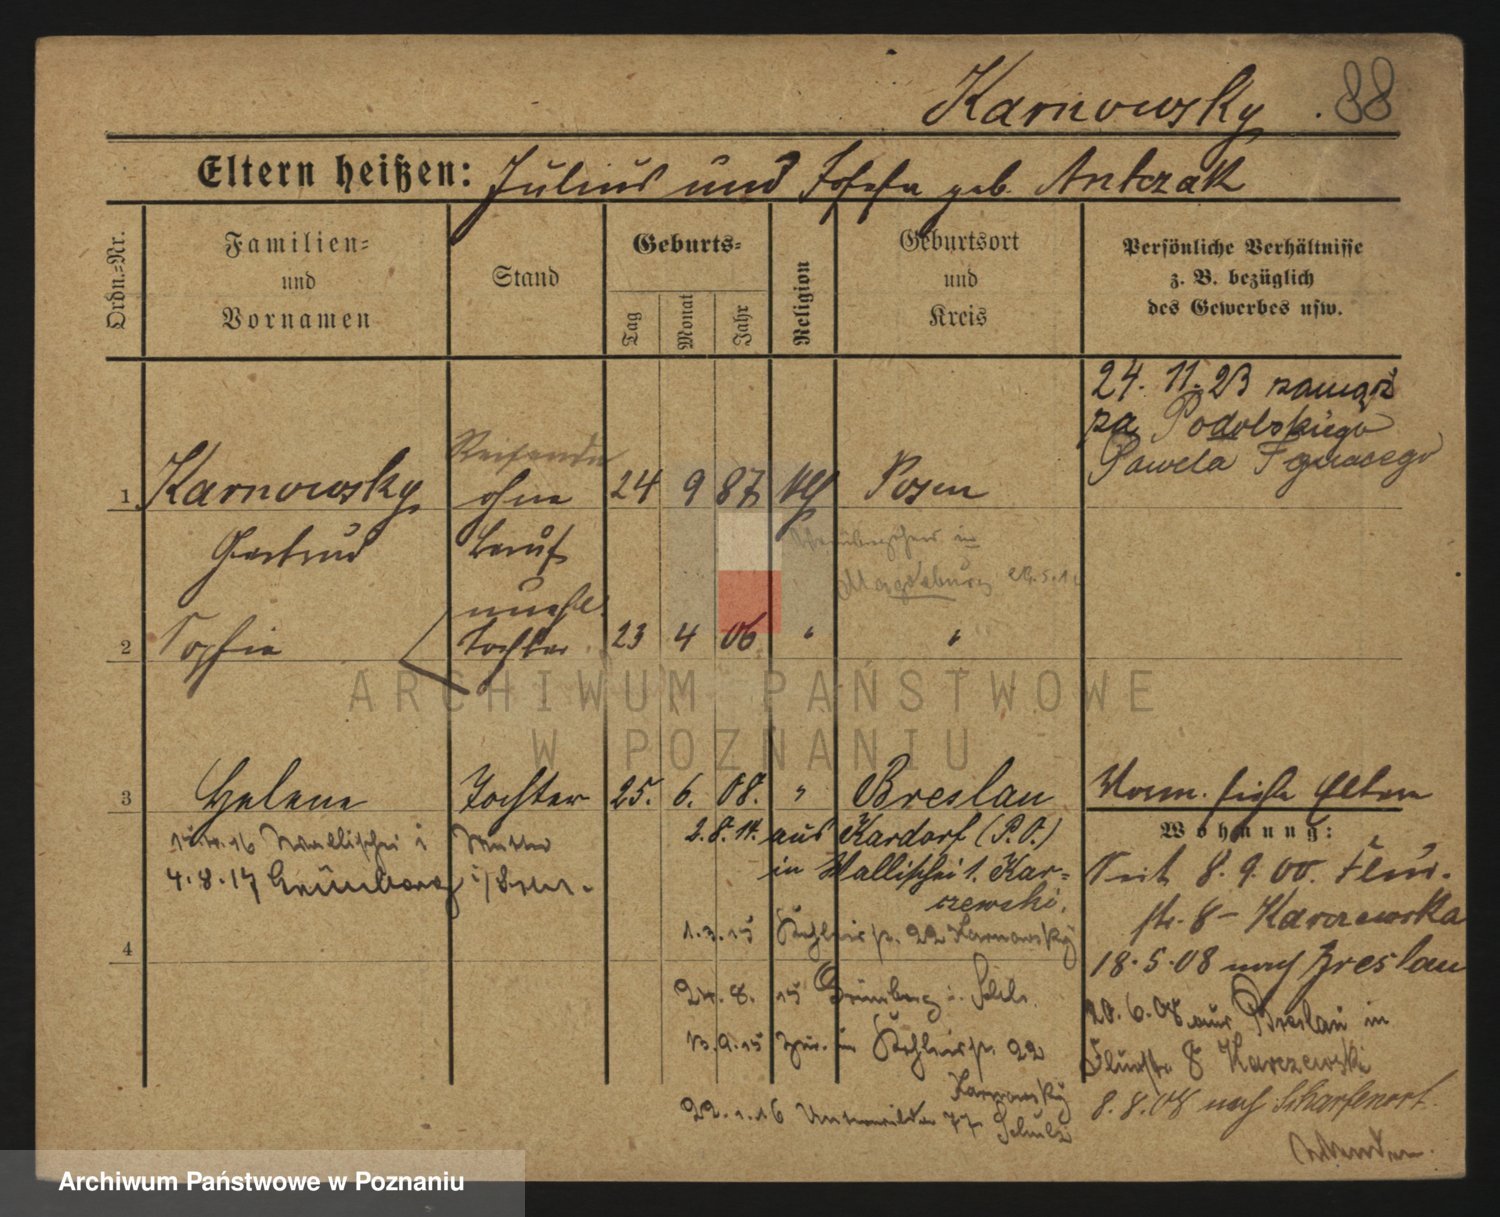 Karnowsky . 88
Eltern heißen: Julius und Josefa geb. Antczak
Ordn.=Nr.
Familien=
und
Vornamen
Stand
Geburts=
Tag
Monat
Jahr
Religion
Geburtsort
und
Kreis
Persönliche Verhältnisse
z. B. bezüglich
des Gewerbes usw.
24. 11. 23
za Podolskiego
Pawela Ignacego
1 Karnowsky ohne 24 9 87 Posen
Gertrud Beruf
Magdeburg
unehl.
2 Sophie Tochter 23 4 06 " "
ARCHIWUM PAŃSTWOWE
W POZNANIU
3 Helene Tochter 25. 6. 08. " Breslau
Vorm. siehe Eltern
Wohnung:
2.8.14. aus Kardorf (P.O.)
in Wallischei 1. Kar=
czewski.
Wallischei Mutter
4.8.17 Grünberg i/Schles.
Seit 8.9.00. Flur-
str. 8 - Karczewska
18.5.08 nach Breslau
20.6.08 aus Breslau in
Flurstr 8 Karczewski
8.8.08 nach Scharfenort.
4
1.3.15 22 Karnowsky
24.8.15 Grünberg i. Schls.
13.9.15 zur. in 22
Karnowsky
22.1.16 77 Schulz
Archiwum Państwowe w Poznaniu